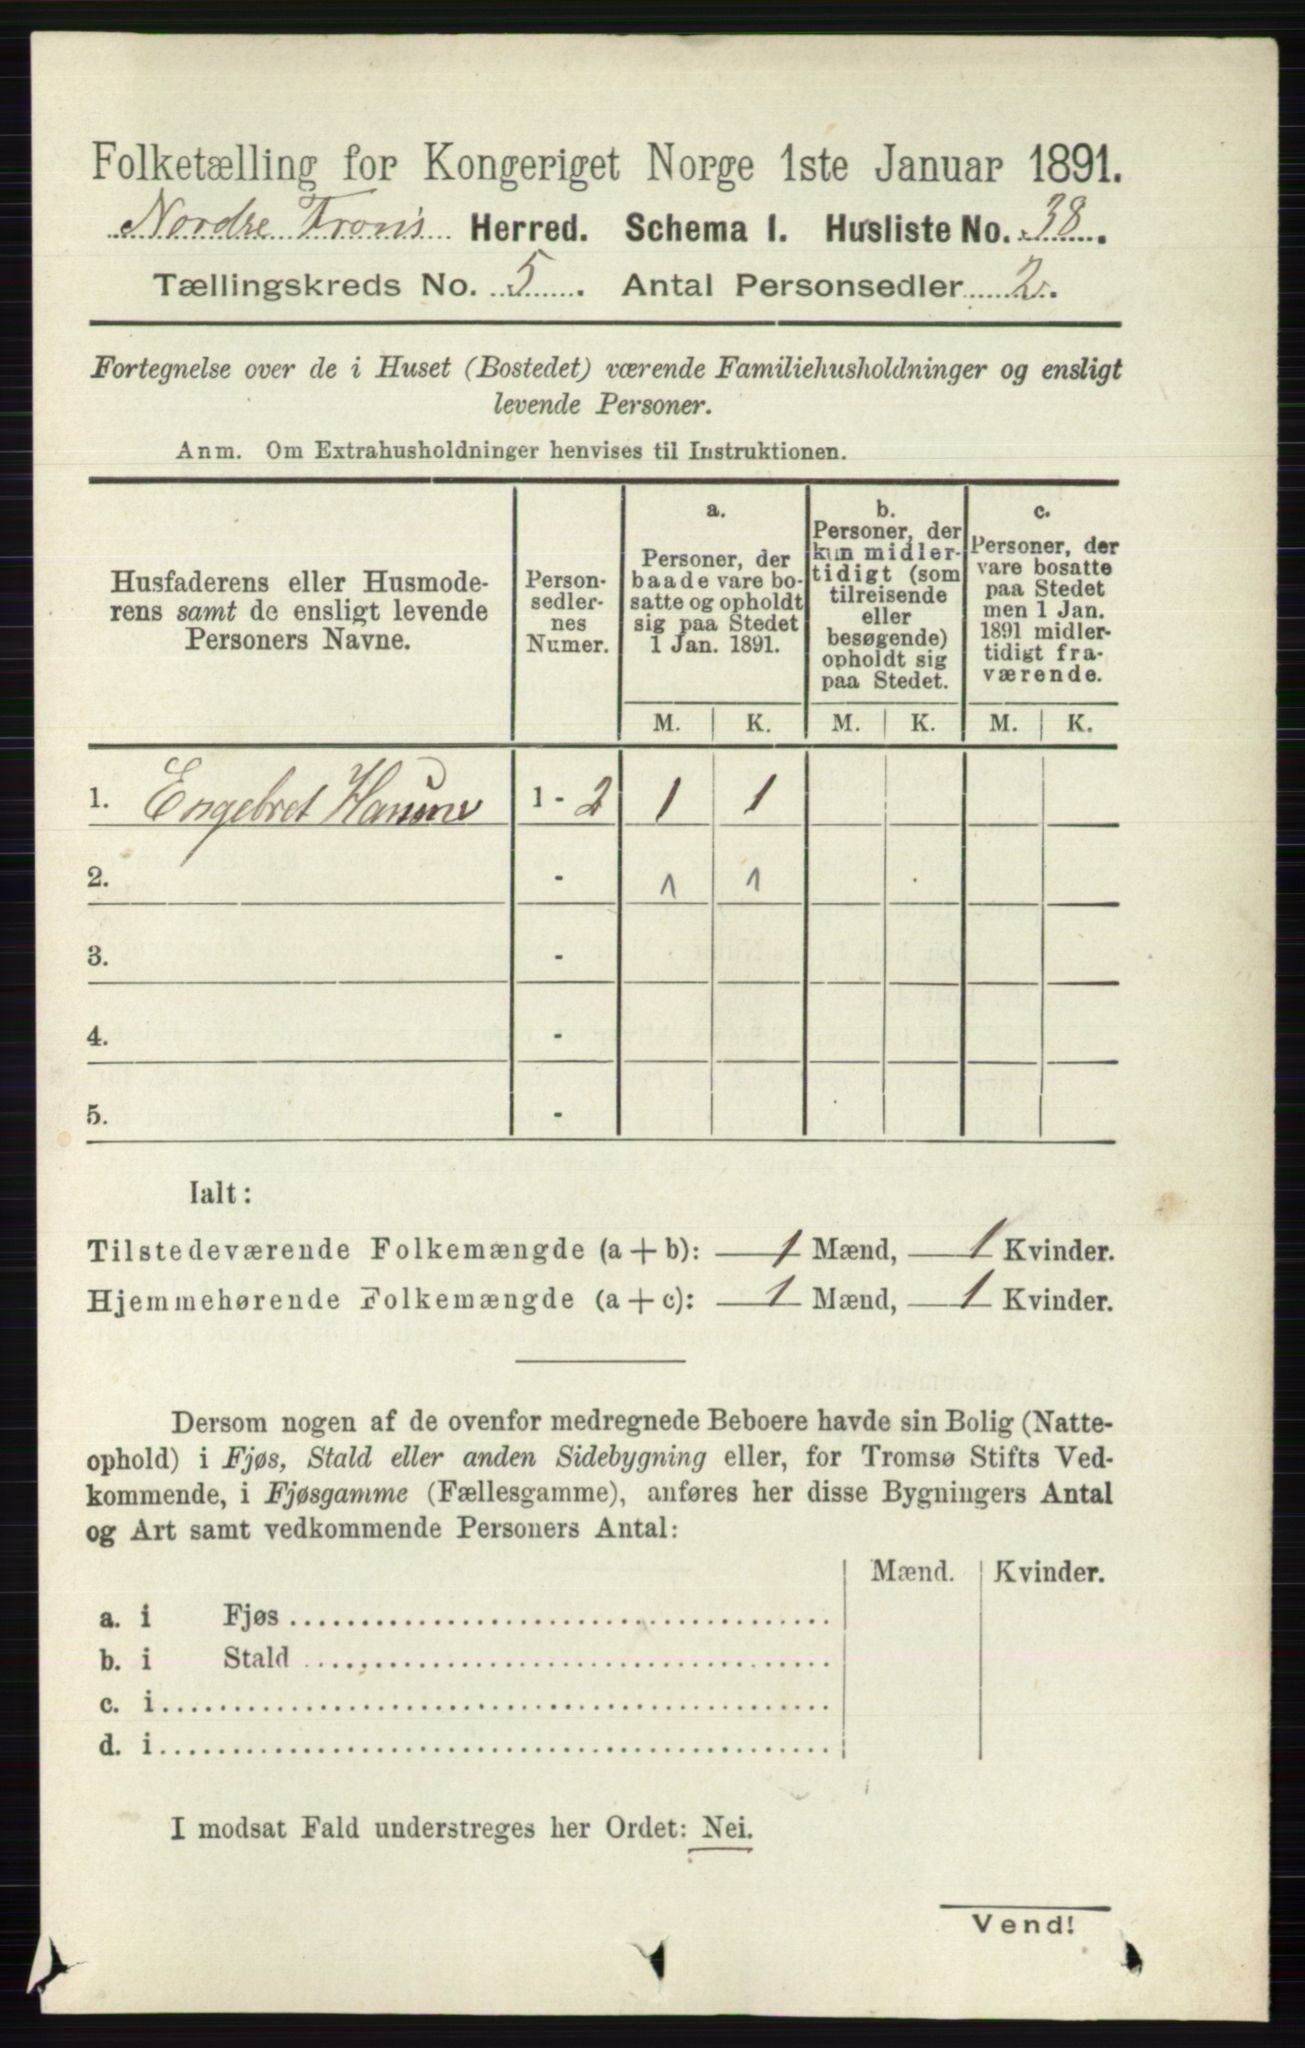 Folketælling for Kongeriget Norge 1ste Januar 1891.
Nordre Fron's Herred. Schema I. Husliste No. 38.
Tællingskreds No. 5. Antal Personsedler 2.
Fortegnelse over de i Huset (Bostedet) værende Familiehusholdninger og ensligt
levende Personer.
Anm. Om Extrahusholdninger henvises til Instruktionen.
Husfaderens eller Husmode-
rens samt de ensligt levende
Personers Navne.
Person-
sedler-
nes
Numer.
a.
Personer, der
baade vare bo-
satte og opholdt
sig paa Stedet
1 Jan. 1891.
b.
Personer, der
kun midler-
tidigt (som
tilreisende
eller
besøgende)
opholdt sig
paa Stedet.
c.
Personer, der
vare bosatte
paa Stedet
men 1 Jan.
1891 midler-
tidigt fra-
værende.
M. K. M. K. M. K.
1. Engebret 1 - 2 1 1
2. - 1 1
3. -
4. -
5. -
Ialt:
Tilstedeværende Folkemængde (a + b): 1 Mænd, 1 Kvinder.
Hjemmehørende Folkemængde (a + c): 1 Mænd, 1 Kvinder.
Dersom nogen af de ovenfor medregnede Beboere havde sin Bolig (Natte-
ophold) i Fjøs, Stald eller anden Sidebygning eller, for Tromsø Stifts Ved-
kommende, i Fjøsgamme (Fællesgamme), anføres her disse Bygningers Antal
og Art samt vedkommende Personers Antal:
Mænd. Kvinder.
a. i Fjøs
b. i Stald
c. i
d. i
I modsat Fald understreges her Ordet: Nei.
Vend!